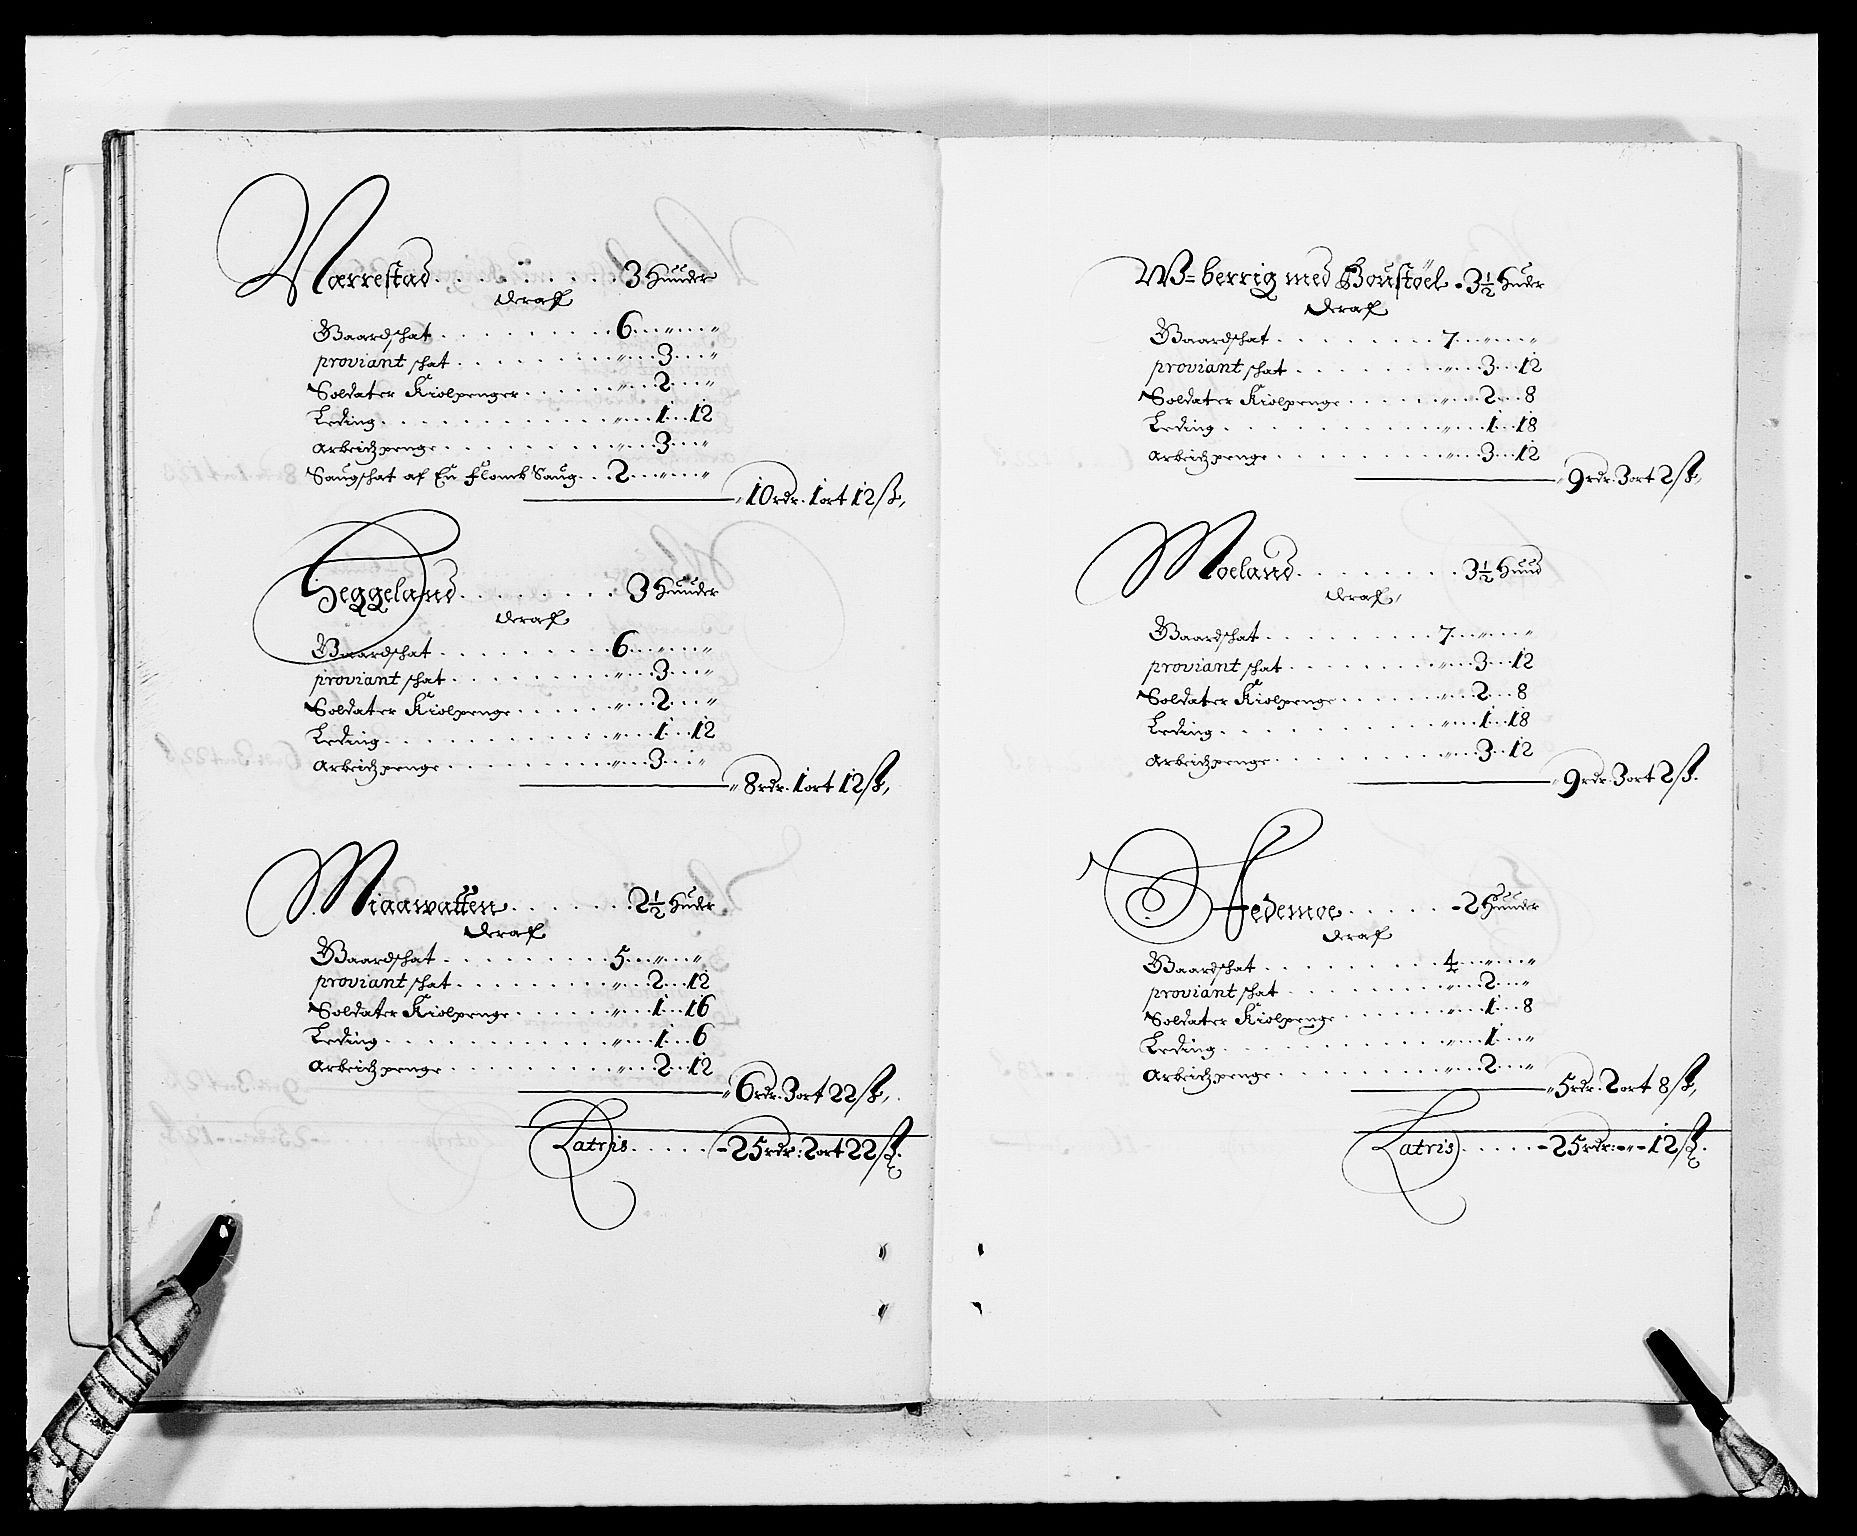 Narrestad . . . . . . . . 3 Huuder
deraf
Gaardschat . . . . . . . 6 . . „ . . „
proviant schat . . . . . . „ . . 3 . . „
Soldater Kiolpenger . . . . . „ . . 2 . . „
Leding . . . . . . . . . „ . . 1 . . 12
Arbeidzpenge . . . . . . . „ . . 3 . . „
Saugschat af En Flomb Saug . . 2 . . „ . . „
„ 10 rdr. 1 ort 12 ß,
Heggeland . . . . . . . 3 Huuder
deraf
Gaardschat . . . . . . . 6 . . „ . . „
proviant schat . . . . . . „ . . 3 . . „
Soldater Kiolpenge . . . . . „ . . 2 . . „
Leding . . . . . . . . . „ . . 1 . . 12
Arbeidzpenge . . . . . . . „ . . 3 . . „
„ 8 rdr. 1 ort 12 ß,
Miaawatten . . . . . . 2½ Hudr
deraf
Gaardschat . . . . . . . 5 . . „ . . „
proviant schat . . . . . . „ . . 2 . . 12
Soldater Kiolpenge . . . . . „ . . 1 . . 16
Leding . . . . . . . . . „ . . 1 . . 6
Arbeidzpenge . . . . . . . „ . . 2 . . 12
„ 6 rdr. 3 ort 22 ß,
Latris . . . . . - 25 rdr: 2 ort 22 ß.
W=berrig med Boustøel . 3½ Hudr
deraf
Gaardschat . . . . . . . 7 . . „ . . „
proviant schat . . . . . . „ . . 3 . . 12
Soldater Kiolpenge . . . . . „ . . 2 . . 8
Leding . . . . . . . . . „ . . 1 . . 18
Arbeidzpenge . . . . . . . „ . . 3 . . 12
„ 9 rdr. 3 ort 2 ß,
Moeland . . . . . . . 3½ Huud
deraf,
Gaardschat . . . . . . . 7 . . „ . . „
proviant schat . . . . . . „ . . 3 . . 12
Soldater Kiolpenge . . . . . „ . . 2 . . 8
Leding . . . . . . . . . „ . . 1 . . 18
Arbeidzpenge . . . . . . . „ . . 3 . . 12
„ 9 rdr. 3 ort 2 ß.
Hedemoe . . . . . - 2 Huuder
deraf
Gaardschat . . . . . . . 4 . . „ . . „
proviant schat . . . . . . „ . . 2 . . „
Soldater Kiolpenge . . . . . „ . . 1 . . 8
Leding . . . . . . . . . „ . . 1 . . „
Arbeidzpenge . . . . . . . „ . . 2 . . „
„ 5 rdr. 2 ort 8 ß,
Latris . . . . . - 25 rdr: - „ - 12 ß.